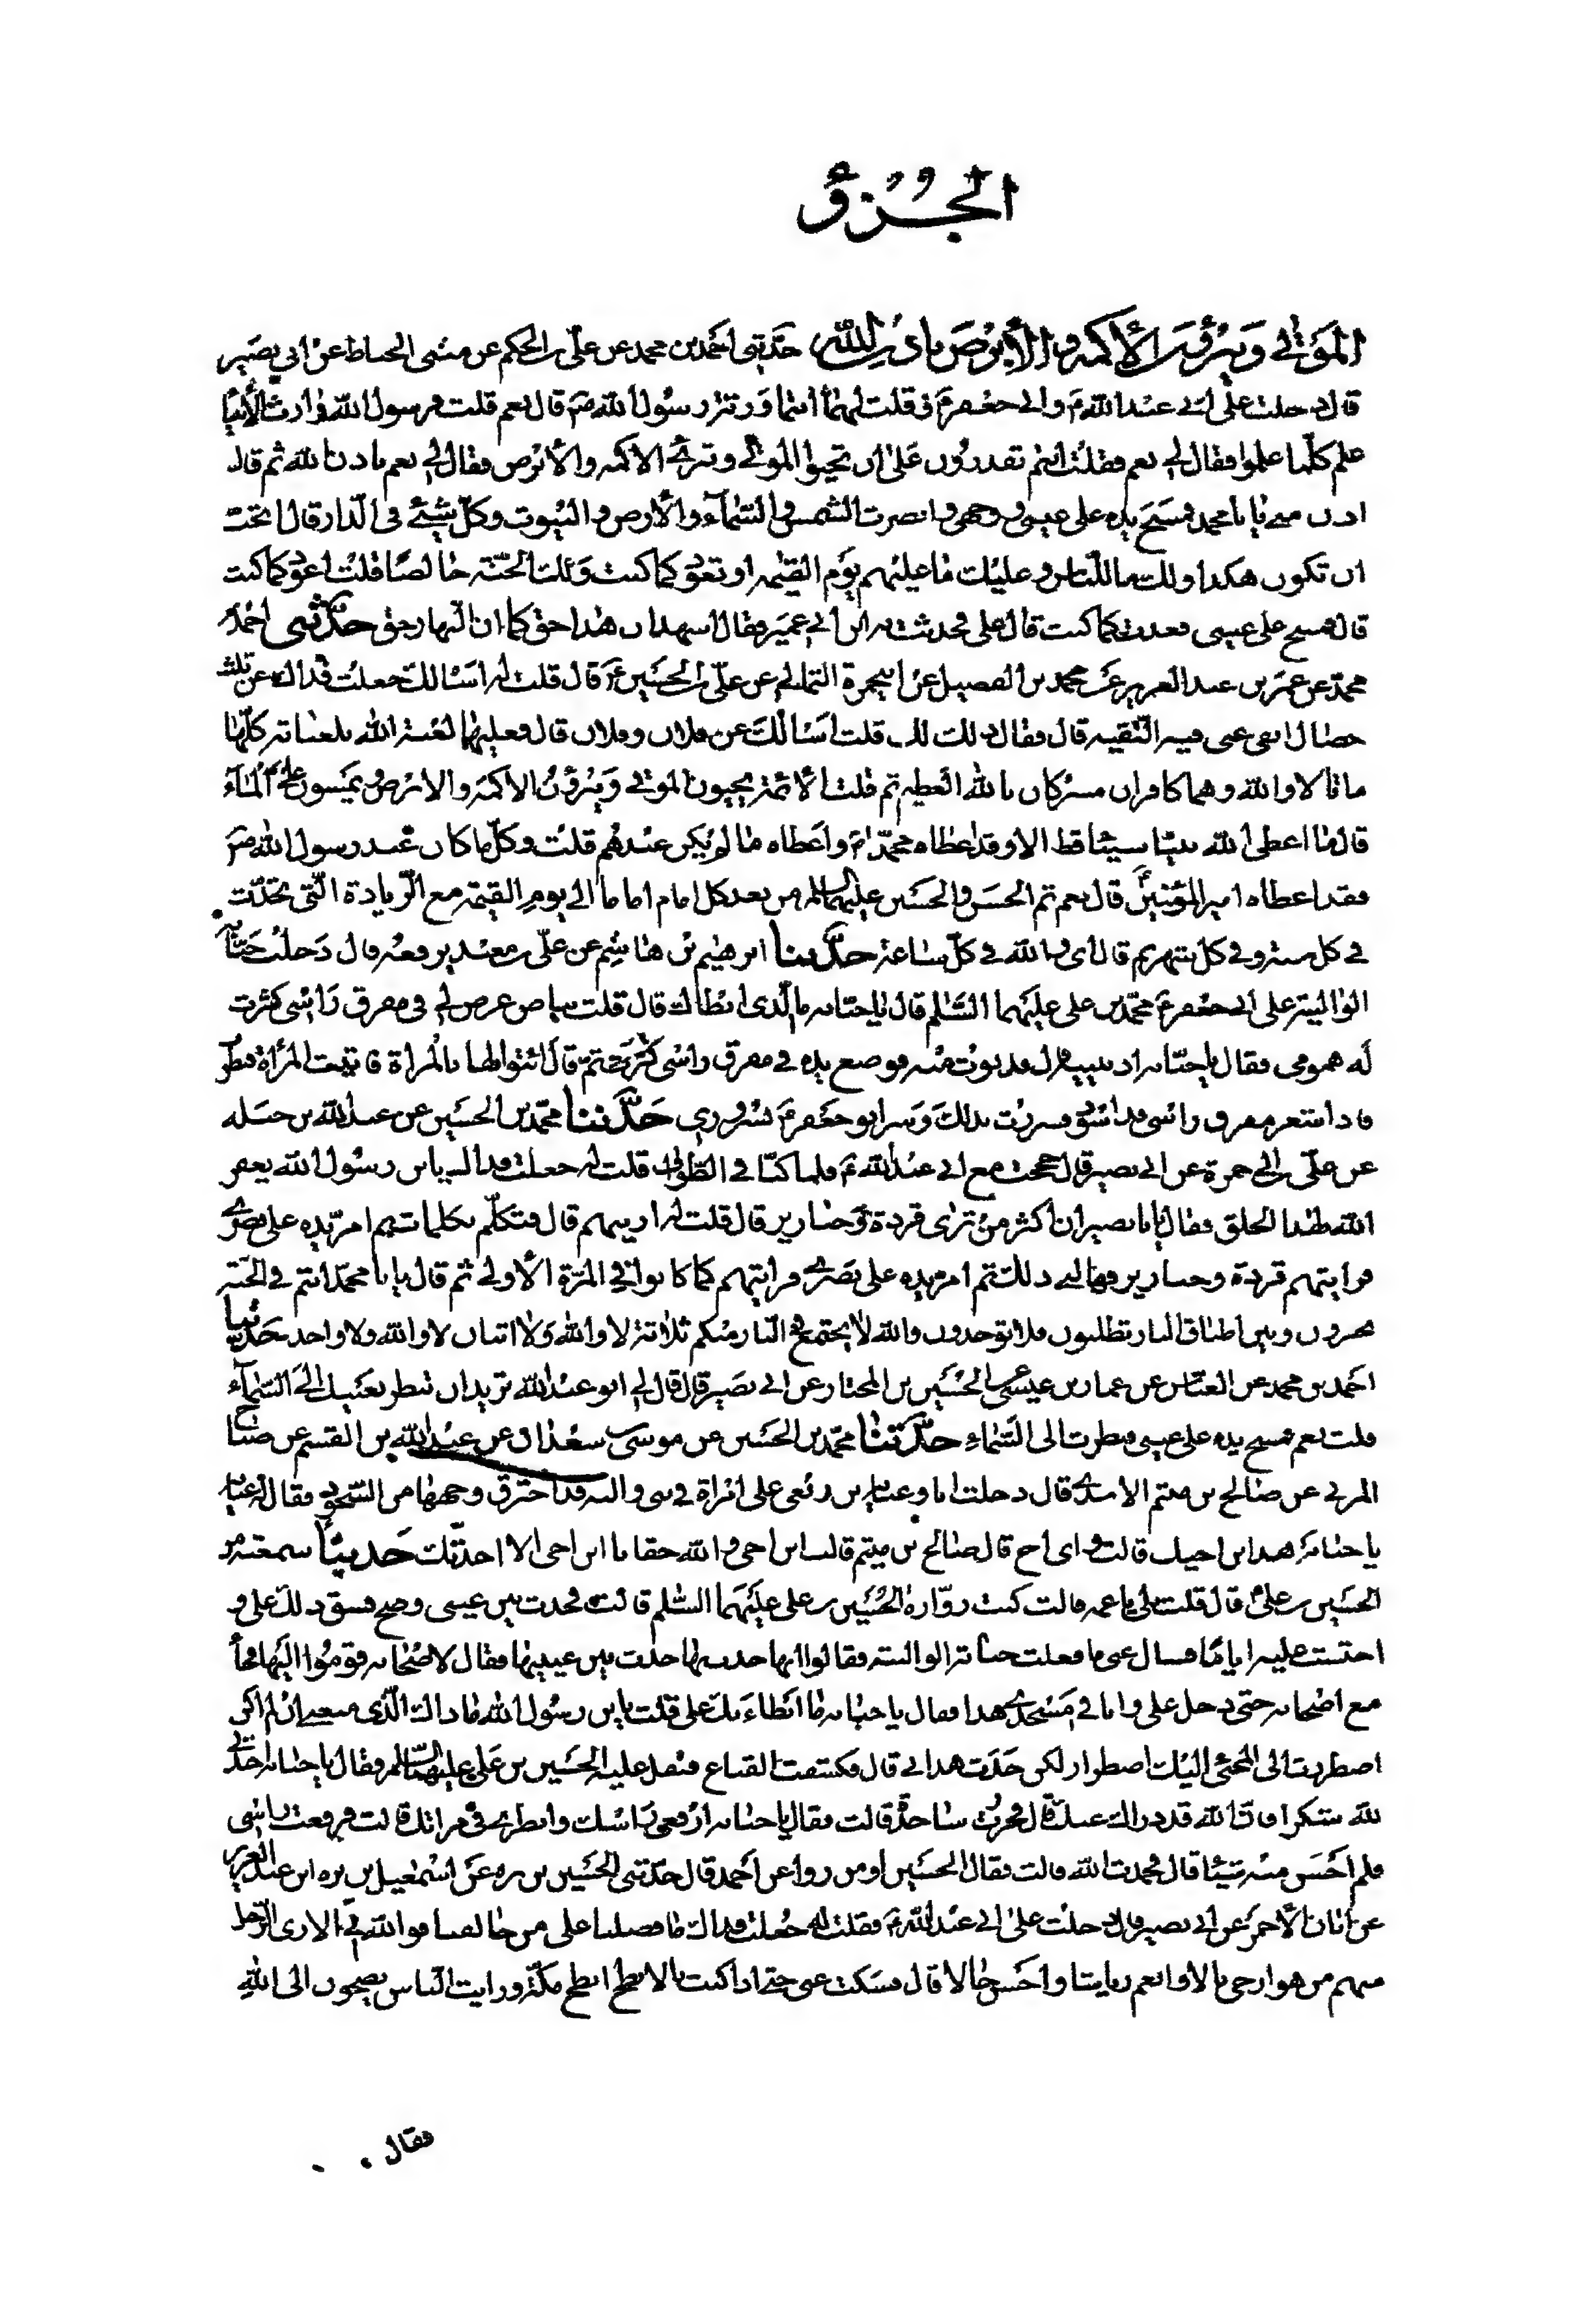 الجزؤ
الموتى ويبرؤن الأكمه والأبرص باذن الله حدثنى احمد بن محمد عن على بن الحكم عن مثنى الحناط عن أبي بصير
قال دخلت على ابى عبد الله ع وابى جعفر ع وقلت لهما انتما ورثة رسول الله ص قال نعم قلت فرسول الله وارث الأنبيا
علم كلما علموا فقال لى نعم فقلت انتم تقدرون على ان تحيوا الموتى وتبرئ الاكمه والأبرص فقال لى نعم باذن الله ثم قال
ادن منى يا با محمد فمسح يده على عينى ووجهى وابصرت الشمس والسماء والأرض والبيوت وكل شئ في الدار قال اتحب
ان تكون هكذا ولك ما للناس وعليك ما عليهم يوم القيمة او تعود كما كنت ولك الجنة خالصا قلت اعود كما كنت
قال فمسح على عينى فعدت كما كنت قال على فحدثت به ابن ابى عمير فقال اشهد ان هذا حق كما ان النهار حق حدثنى احمد بن
محمد عن عمر بن عبد العزيز عن محمد بن الفضيل عن ابيحمزة الثمالى عن على بن الحسين ع قال قلت له اسئالك جعلت فداك عن ثلث
خصال انفى عنى فيه التقيه قال فقال ذلك لك قلت اسئالك عن فلان وفلان قال فعليهما لعنة الله بلعناته كلها
ماتا والله وهما كافران مشركان بالله العظيم ثم قلت الأئمة يحيون الموتى ويبرؤن الاكمه والابرص ويمشون على الماء
قال ما اعطى الله نبيا شيئا قط الا وقد اعطاه محمدا ص واعطاه ما لم يكن عندهم قلت وكل ما كان عند رسول الله ص
فقد اعطاه امير المؤمنين ع قال نعم ثم الحسن والحسين عليهما السلام من بعد كل امام اماما الى يوم القيمة مع الزيادة التى تحدث
في كل سنة وفي كل شهر ثم قال اى والله في كل ساعة حدثنا ابرهيم بن هاشم عن على بن معبد يرفعه قال دخلت حبابه
الوالبية على ابى جعفر ع محمد بن على عليهما السلام قال يا حبابه ما الذى ابطاك قال قلت بياض عرض لى فى مفرق راسى كثرت
له همومى فقال يا حبابه ادنينيه قال فدنوت منه فوضع يده في مفرق راسى ثم قال ائتوا لها بالمراة فاتيت المراة فنظرت
فاذا شعر مفرق راسى قد اسود فسررت بذلك وسر ابو جعفر ع بسرورى حدثنا محمد بن الحسين عن عبد الله بن جبله
عن على بن ابى حمزة عن ابى بصير قال حججت مع ابى عبد الله ع فلما كنا فى الطواف قلت له جعلت فداك يابن رسول الله يغفر
الله لهذا الخلق فقال يا با بصير ان اكثر من ترى قردة وخنازير قال قلت له ارينهم قال فتكلم بكلمات ثم امر يده على بصرى
فرايتهم قردة وخنازير فهالنى ذلك ثم امر يده على بصرى فرايتهم كما كانوا فى المرة الأولى ثم قال يا با محمد انتم فى الجنة
تحبرون وبين اطباق النار تطلبون فلا توجدون والله لا يجتمع فى النار منكم ثلاثة لا والله ولا اثنان لا والله ولا واحد حدثنا
احمد بن محمد عن العباس عن عمار بن عيسى عن الحسين بن المختار عن ابى بصير قال قال لى ابو عبد الله تريد ان تنظر بعينيك الى السماء
قلت نعم فمسح يده على عينى فنظرت الى السماء حدثنا محمد بن الحسين عن موسى بن سعدان عن عبد الله بن القسم عن صباح
المزنى عن صالح بن ميثم الاسدى قال دخلت انا وعبايه بن ربعى على امراة فى بنى والبه قد احترق وجهها من السجود فقال لها عبايه
يا حبابه هذا ابن اخيك قالت واى اخ قال صالح بن ميثم قالت ابن اخى والله حقا يا ابن اخى الا احدثك حديثا سمعته من
الحسين بن على قال قلت بلى يا عمه قالت كنت زواره الحسين بن على عليهما السلام قالت فحدث بين عينى وضح فشق ذلك على و
احتبست عليه اياما فسال عنى ما فعلت حبابة الوالبيه فقالوا انها حدث بها حدث بين عينيها فقال لاصحابه قوموا اليها فجاء
مع اصحابه حتى دخل على وانا فى مسجدى هذا فقال يا حبابه ما ابطاء بك على قلت يابن رسول الله ما ذاك الذى منعنى ان لم اكن
اضطررت الى المجئ اليك اضطرارا لكن حدث هذا بى قال فكشفت القناع فتفل عليه الحسين بن على عليهما السلام فقال يا حبابه احدثى
لله شكرا فان الله قد درأه عنك قال فخررت ساجدة قالت فقال يا حبابه ارفعى راسك وانظرى فى مراتك قالت فرفعت راسى
فلم احس منه شيئا قال فحمدت الله
عن ابان الأحمر عن ابى بصير قال دخلت على ابى عبد الله ع فقلت له جعلت فداك ما فضلنا على من خالفنا فوالله انى لارى الرجل
منهم من هو ارخى بالا وانعم رياشا واحسن حالا قال فسكت عنى حتى اذا كنت بالابطح ابطح مكة ورايت الناس يضجون الى الله
فقال